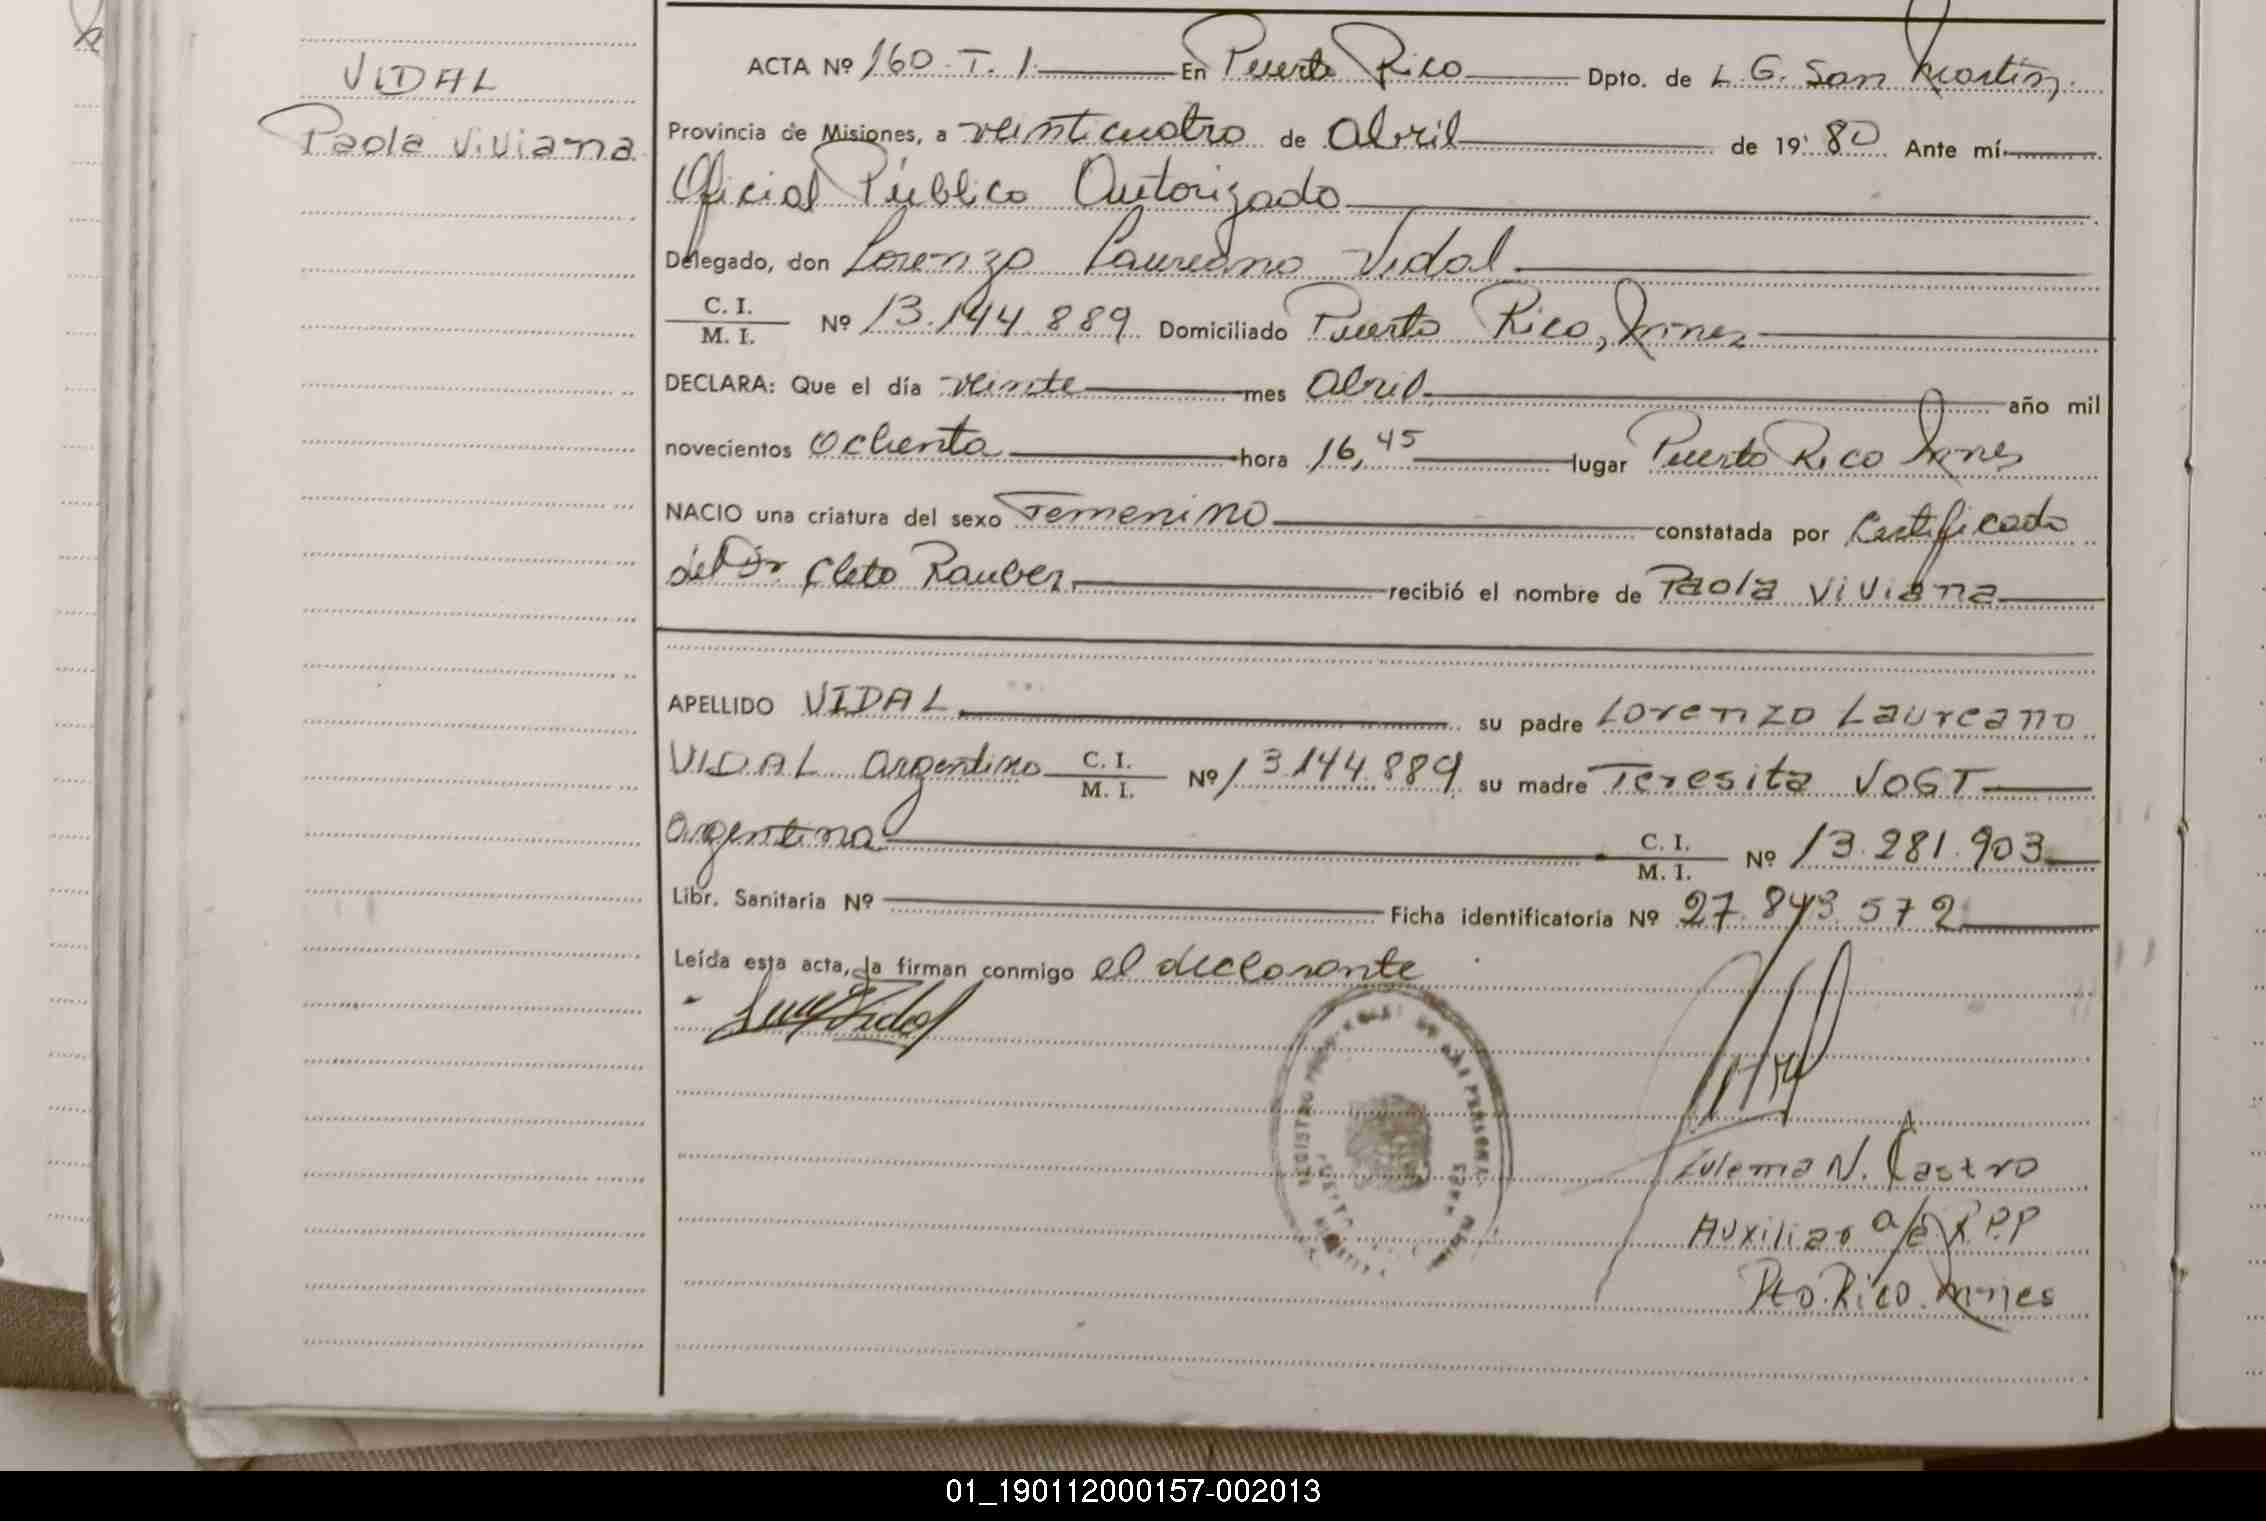 VIDAL
Paola Viviana
ACTA Nº 160. T. 1. En Puerto Rico Dpto. de L. G. San Martín.
Provincia de Misiones, a veinticuatro de Abril de 19 80 Ante mí
Oficial Público Autorizado
Delegado, don Lorenzo Laureano Vidal
C. I.
M. I. Nº 13.144.889 Domiciliado Puerto Rico, Mnes
DECLARA: Que el día veinte mes abril año mil
novecientos ochenta hora 16,45 lugar Puerto Rico Mnes
NACIO una criatura del sexo Femenino constatada por Certificado
del Dr. Cleto Rauber, recibió el nombre de Paola Viviana
APELLIDO VIDAL su padre Lorenzo Laureano
VIDAL argentino C. I. M. I. Nº 13.144.889 su madre Teresita VOGT
argentina C. I. M. I. Nº 13.281.903
Libr. Sanitaria Nº Ficha identificatoria Nº 27.843.572
Leída esta acta, la firman conmigo el declarante
Vidal
REGISTRO
Zulema N. Castro
Auxiliar a/c R.P.P
Pto. Rico. Mnes
01_190112000157-002013